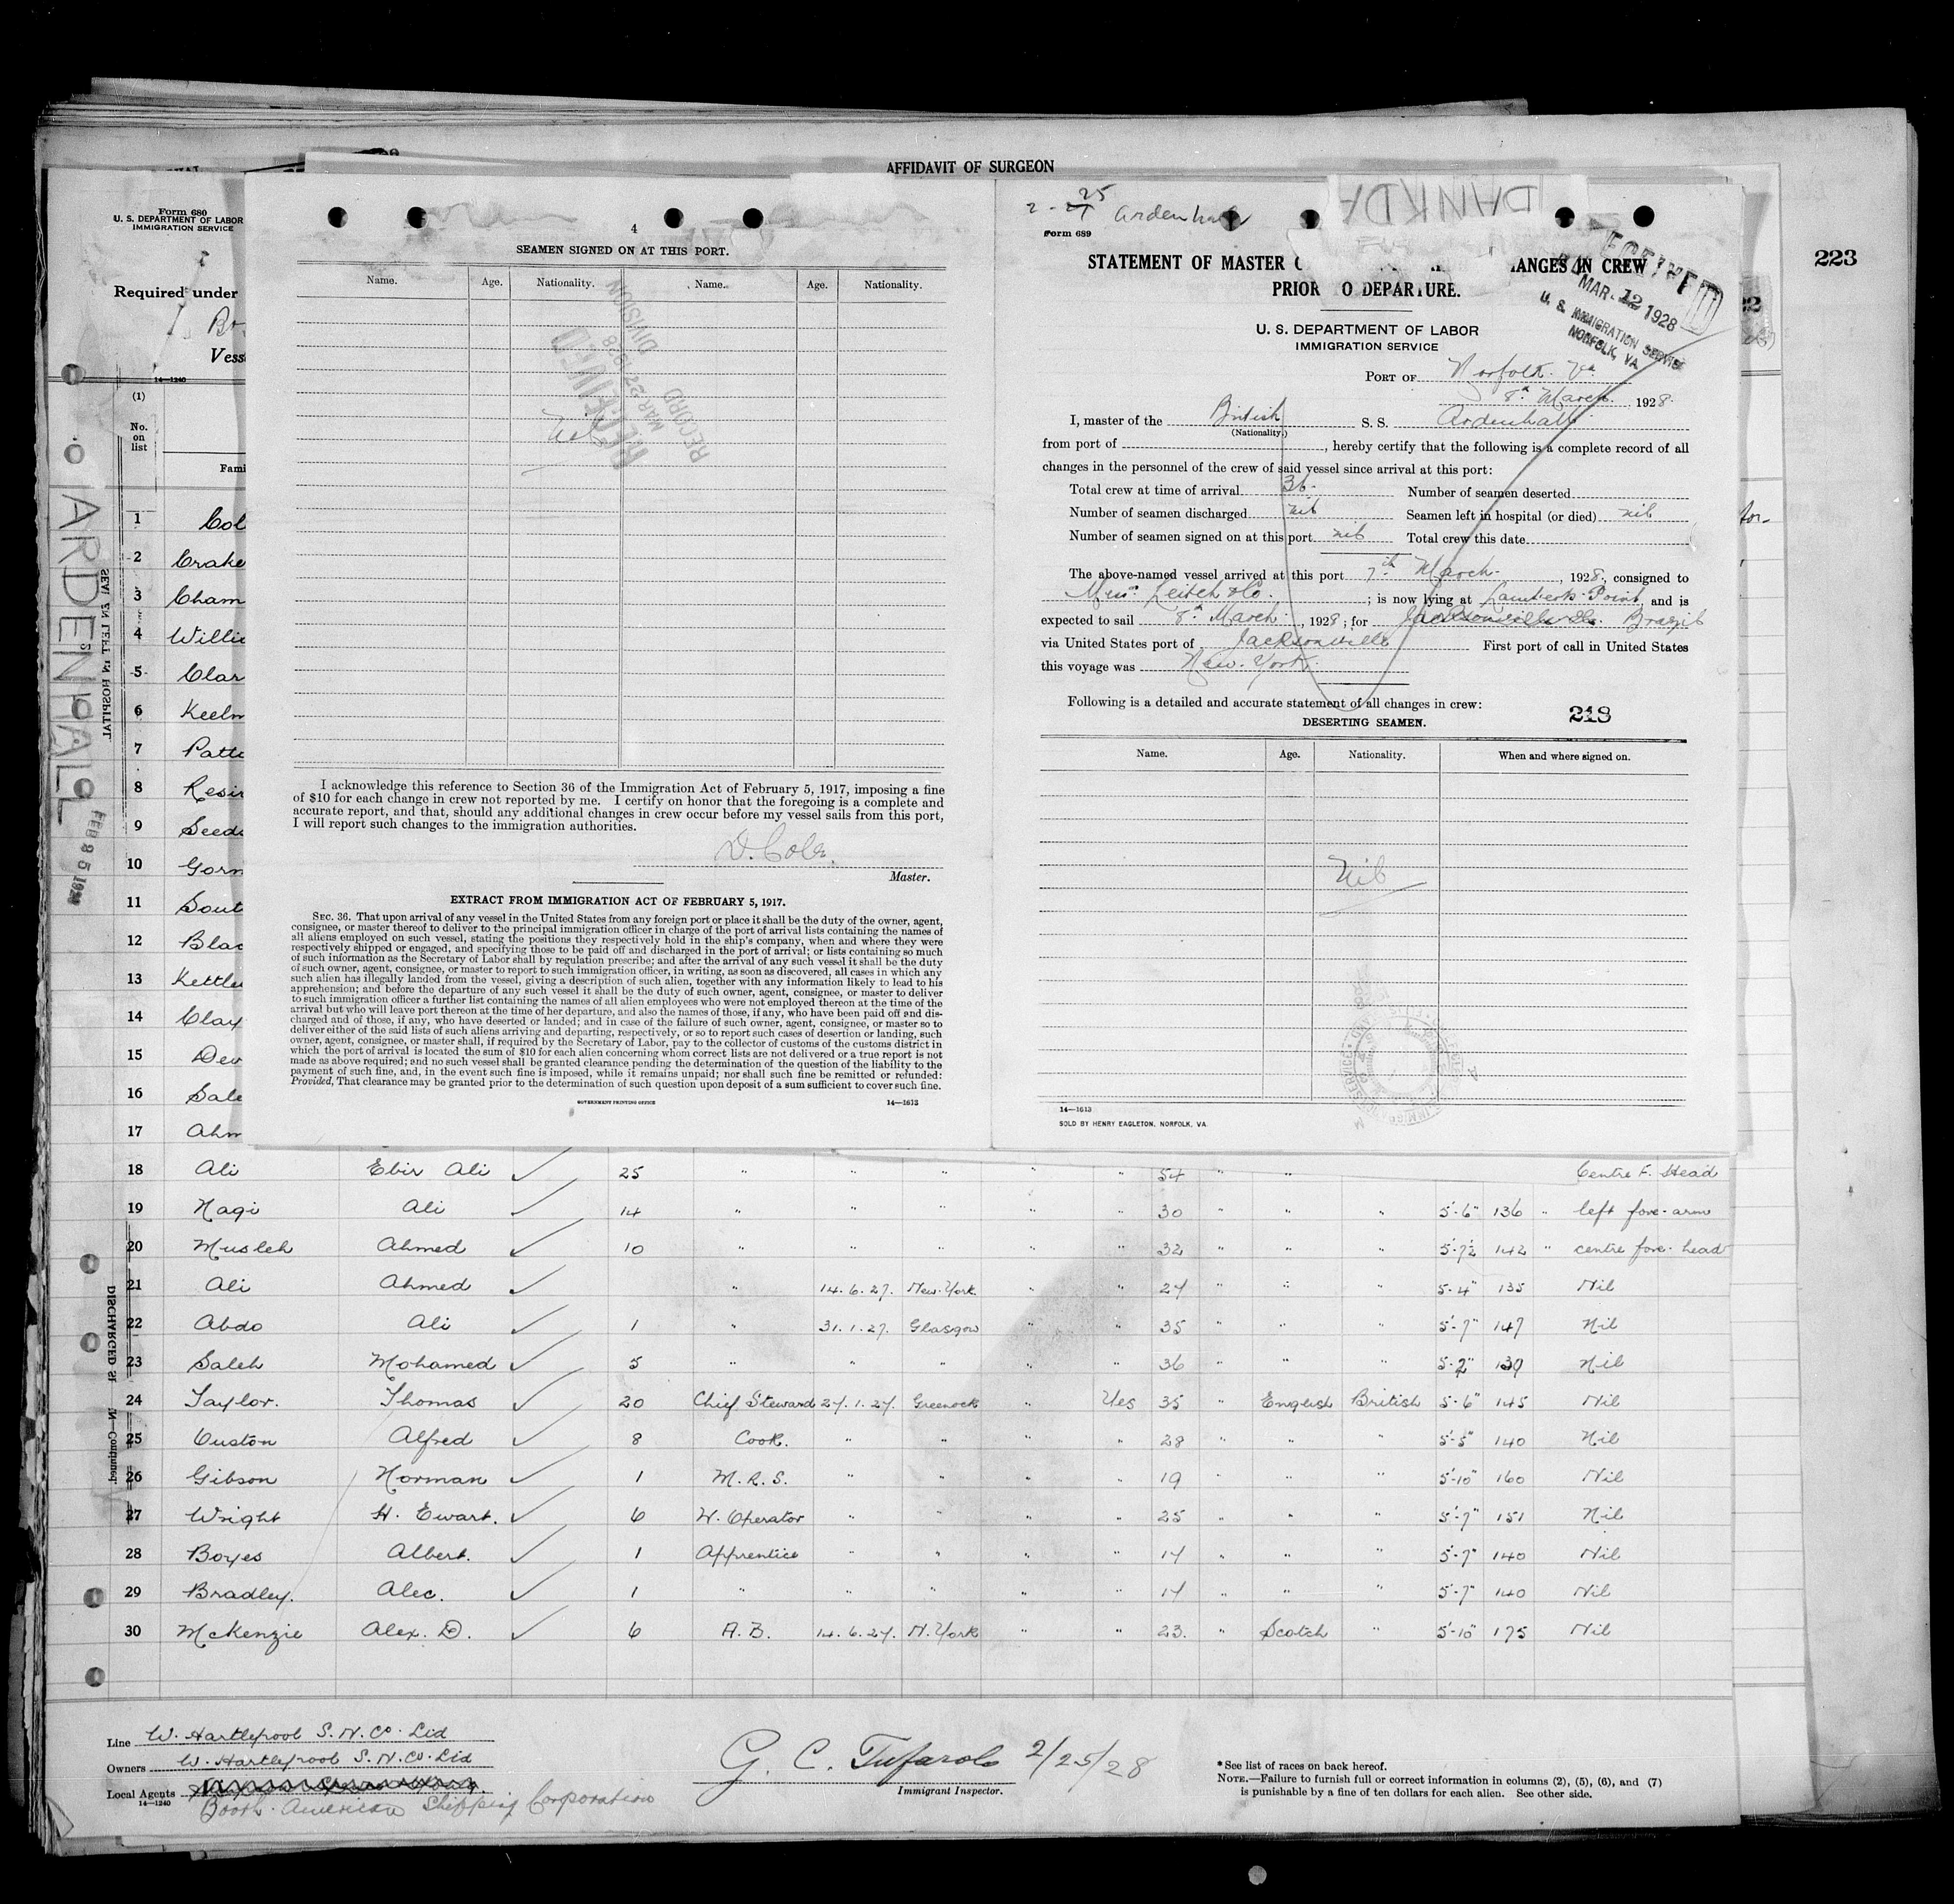 AFFIDAVIT OF SURGEON
223
Form 680
U. S. DEPARTMENT OF LABOR
IMMIGRATION SERVICE
Required under
14—1240
(1)
No.
on
list
ARDENHALL
4
SEAMEN SIGNED ON AT THIS PORT.
Name. Age. Nationality. Name. Age. Nationality.
RECEIVED
MAR 22 1928
RECORD DIVISION
Nil
I acknowledge this reference to Section 36 of the Immigration Act of February 5, 1917, imposing a fine
of $10 for each change in crew not reported by me. I certify on honor that the foregoing is a complete and
accurate report, and that, should any additional changes in crew occur before my vessel sails from this port,
I will report such changes to the immigration authorities.
Master.
EXTRACT FROM IMMIGRATION ACT OF FEBRUARY 5, 1917.
SEC. 36. That upon arrival of any vessel in the United States from any foreign port or place it shall be the duty of the owner, agent,
consignee, or master thereof to deliver to the principal immigration officer in charge of the port of arrival lists containing the names of
all aliens employed on such vessel, stating the positions they respectively hold in the ship's company, when and where they were
respectively shipped or engaged, and specifying those to be paid off and discharged in the port of arrival; or lists containing so much
of such information as the Secretary of Labor shall by regulation prescribe; and after the arrival of any such vessel it shall be the duty
of such owner, agent, consignee, or master to report to such immigration officer, in writing, as soon as discovered, all cases in which any
such alien has illegally landed from the vessel, giving a description of such alien, together with any information likely to lead to his
apprehension; and before the departure of any such vessel it shall be the duty of such owner, agent, consignee, or master to deliver
to such immigration officer a further list containing the names of all alien employees who were not employed thereon at the time of the
arrival but who will leave port thereon at the time of her departure, and also the names of those, if any, who have been paid off and dis-
charged and of those, if any, who have deserted or landed; and in case of the failure of such owner, agent, consignee, or master so to
deliver either of the said lists of such aliens arriving and departing, respectively, or so to report such cases of desertion or landing, such
owner, agent, consignee, or master shall, if required by the Secretary of Labor, pay to the collector of customs of the customs district in
which the port of arrival is located the sum of $10 for each alien concerning whom correct lists are not delivered or a true report is not
made as above required; and no such vessel shall be granted clearance pending the determination of the question of the liability to the
payment of such fine, and, in the event such fine is imposed, while it remains unpaid; nor shall such fine be remitted or refunded:
Provided, That clearance may be granted prior to the determination of such question upon deposit of a sum sufficient to cover such fine.
GOVERNMENT PRINTING OFFICE 14—1613
2 - 25 Ardenhall
Form 689
STATEMENT OF MASTER CHANGES IN CREW
PRIOR TO DEPARTURE.
MAR 12 1928
U. S. IMMIGRATION SERVICE
NORFOLK, VA
U. S. DEPARTMENT OF LABOR
IMMIGRATION SERVICE
PORT OF Norfolk. Va
8th March, 1928.
I, master of the British S. S. Ardenhall
(Nationality.)
from port of , hereby certify that the following is a complete record of all
changes in the personnel of the crew of said vessel since arrival at this port:
Total crew at time of arrival 36. Number of seamen deserted
Number of seamen discharged nil Seamen left in hospital (or died) nil
Number of seamen signed on at this port nil Total crew this date
The above-named vessel arrived at this port 7th March, 1928, consigned to
Mess. Leitch & Co. ; is now lying at Lamberts Point, and is
expected to sail 8th March, 1928; for Jacksonville Brazil
via United States port of Jacksonville First port of call in United States
this voyage was New York.
Following is a detailed and accurate statement of all changes in crew:
218
DESERTING SEAMEN.
Name. Age. Nationality. When and where signed on.
Nil
14—1613
SOLD BY HENRY EAGLETON, NORFOLK, VA.
1 Col
2 Crake
3 Cham
4 Willi
5 Clar
6 Keelm
7 Patte
8 Resi
9 Seed
10 Gorm
11 Sout
12 Blac
13 Kettle
14 Clay
15 Dev
16 Sale
17 Ahm
18 Ali Ebir Ali 25 " " " " " 54 " " Centre F. Head
19 Nagi Ali 14 " " " " " 30 " " " 5'-6" 136 " left fore-arm
20 Musleh Ahmed 10 " " " " " 32 " " " 5'-7½ 142 " centre fore-head
21 Ali Ahmed " 14.6.27. New-York " " 27 " " " 5-4" 135 Nil
22 Abdo Ali 1 " 31.1.27. Glasgow " " 35 " " " 5'-7" 147 Nil
23 Saleh Mohamed 5 " " " " " 36 " " " 5-2" 139 Nil
24 Taylor. Thomas 20 Chief Steward 27.1.27. Greenock " Yes 35 " English British 5-6" 145 Nil
25 Ouston Alfred 8 Cook. " " " " 28 " " " 5'-5" 140 Nil
26 Gibson Norman 1 M.R.S. " " " " 19 " " " 5'-10" 160 Nil
27 Wright H. Ewart. 6 W. Operator " " " " 25 " " " 5'-7" 151 Nil
28 Boyes Albert. 1 Apprentice " " " " 17 " " " 5'-7" 140 Nil
29 Bradley. Alec. 1 " " " " " 17 " " " 5'-7" 140 Nil
30 McKenzie Alex. D. 6 A.B. 14.6.27. N. York " " 23. " Scotch " 5'-10" 175 Nil
Line W. Hartlepool S. N. Co. Ltd
Owners W. Hartlepool S. N. Co. Ltd
Local Agents
14—1240
Booth American Shipping Corporation
G. C. Tufarolo 2/25/28
Immigrant Inspector.
* See list of races on back hereof.
NOTE.—Failure to furnish full or correct information in columns (2), (5), (6), and (7)
is punishable by a fine of ten dollars for each alien. See other side.